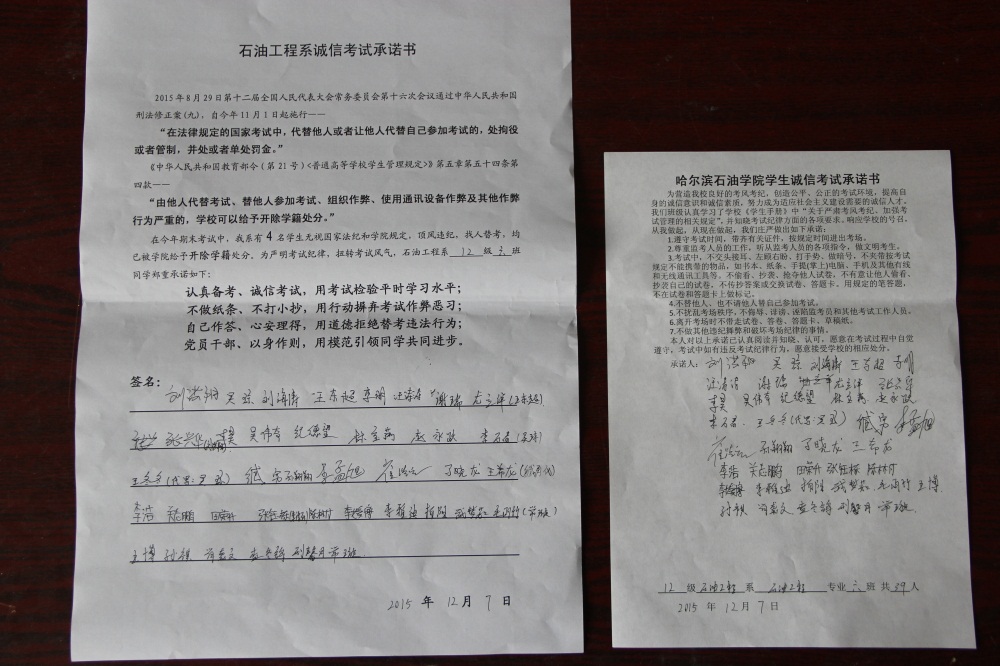 石油工程系诚信考试承诺书
2015年8月29日第十二届全国人民代表大会常务委员会第十六次会议通过中华人民共和国
刑法修正案(九)，自今年11月1日起施行——
“在法律规定的国家考试中，代替他人或者让他人代替自己参加考试的，处拘役
或者管制，并处或者单处罚金。”
《中华人民共和国教育部令（第21号）<普通高等学校学生管理规定>》第五章第五十四条第
四款——
“由他人代替考试、替他人参加考试、组织作弊、使用通讯设备作弊及其他作弊
行为严重的，学校可以给予开除学籍处分。”
在今年期末考试中，我系有4名学生无视国家法纪和学院规定，顶风违纪，找人替考，均
已被学院给予开除学籍处分。为严明考试纪律，扭转考试风气，石油工程系 12 级 六 班
同学郑重承诺如下：
认真备考、诚信考试，用考试检验平时学习水平；
不做纸条、不打小抄，用行动摒弃考试作弊恶习；
自己作答、心安理得，用道德拒绝替考违法行为；
党员干部、以身作则，用模范引领同学共同进步。
签名：
吴琼 刘海涛 王东超 李明 谢瑞
吴伟有 纪德望 林宝嵩 赵永跃
丁晓龙 王希龙
李浩
王博
2015 年 12 月 7 日
哈尔滨石油学院学生诚信考试承诺书
为营造我校良好的考风考纪，创造公平、公正的考试环境，提高自
身的诚信意识和诚信素质，努力成为适应社会主义建设需要的诚信人才。
我们班级认真学习了学校《学生手册》中“关于严肃考风考纪、加强考
试管理的相关规定”，并知晓考试纪律方面的各项要求。响应学校的号召，
从我做起，从现在做起，我们庄严做出如下承诺：
1.遵守考试时间，带齐有关证件，按规定时间进出考场。
2.尊重监考人员的工作，听从监考人员的各项指令，做文明考生。
3.考试中，不交头接耳、左顾右盼、打手势、做暗号，不夹带按考试
规定不能携带的物品，如书本、纸条、手提(掌上)电脑、手机及其他有线
和无线通讯工具等。不偷看、抄袭、抢夺他人试卷，不有意让他人偷看、
抄袭自己的试卷。不传抄答案或交换试卷、答题卡。用规定的笔答题，
不在试卷和答题卡上做标记。
4.不替他人、也不请他人替自己参加考试。
5.不扰乱考场秩序，不侮辱、诽谤、诬陷监考员和其他考试工作人员。
6.离开考场时不带走试卷、答卷、答题卡、草稿纸。
7.不做其他违纪舞弊和破坏考场纪律的事情。
本人对以上承诺已认真阅读并知晓、认可，愿意在考试过程中自觉
遵守，考试中如有违反考试纪律行为，愿意接受学校的相应处分。
承诺人： 吴琼 刘海涛 王东超 李明
谢瑞
吴伟有 纪德望 林宝嵩 赵永跃
丁晓龙 王希龙
李浩
王博
12 级 石油工程 系 石油工程 专业 六 班 共 39 人
2015 年 12 月 7 日